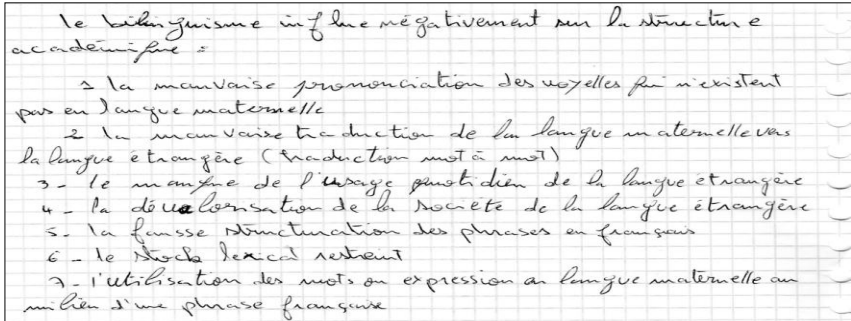 le bilinguisme influe négativement sur la structure
académique :
1 la mauvaise prononciation des voyelles qui n'existent
pas en langue maternelle
2 la mauvaise traduction de la langue maternelle vers
la langue étrangère (traduction mot à mot)
3- le manque de l'usage quotidien de la langue étrangère
4- la dévalorisation de la société de la langue étrangère
5- la fausse structuration des phrases en français
6- le stock lexical restreint
7- l'utilisation des mots ou expression en langue maternelle au
milieu d'une phrase française